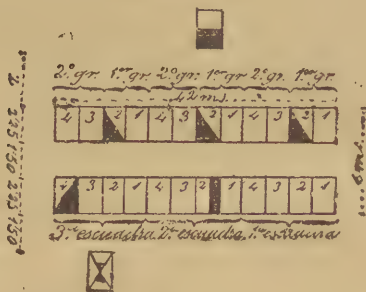 2º gr. 1er gr. 2º gr. 1er gr. 2º gr. 1er gr.
42 ms.
4 3 2 1 4 3 2 1 4 3 2 1
4 3 2 1 4 3 2 1 4 3 2 1
3ra escuadra. 2ª escuadra. 1ra escuadra
6 ms.